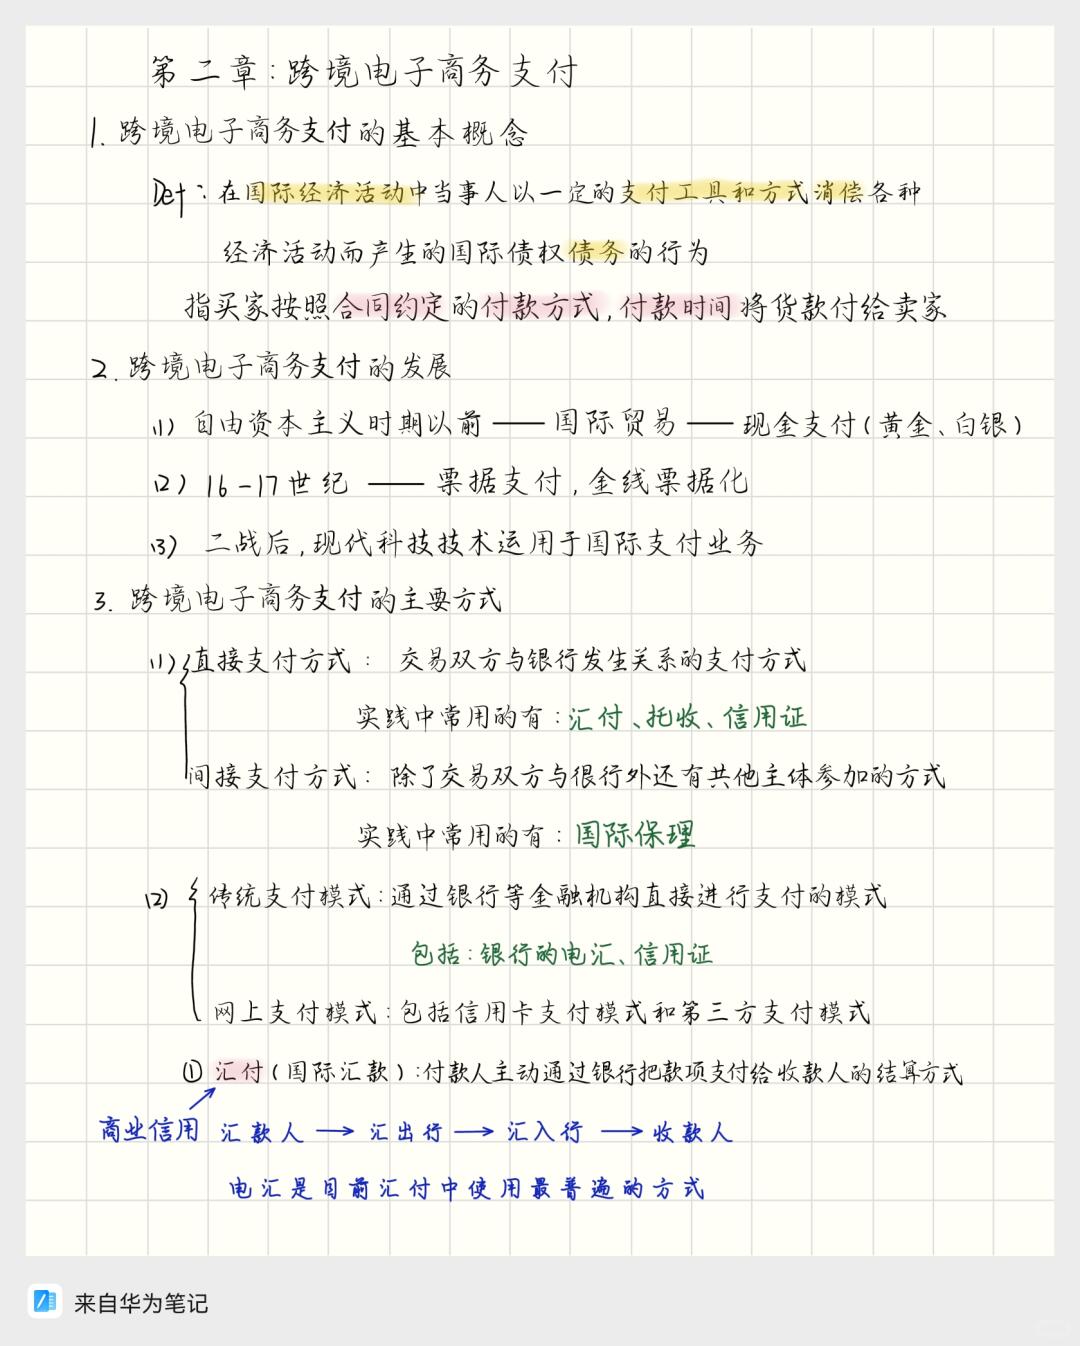 第二章:跨境电子商务支付
1. 跨境电子商务支付的基本概念
Def:在国际经济活动中当事人以一定的支付工具和方式消偿各种
经济活动而产生的国际债权债务的行为
指买家按照合同约定的付款方式,付款时间将货款付给卖家
2. 跨境电子商务支付的发展
(1) 自由资本主义时期以前——国际贸易——现金支付(黄金、白银)
(2) 16-17世纪——票据支付,金线票据化
(3) 二战后,现代科技技术运用于国际支付业务
3. 跨境电子商务支付的主要方式
(1) 直接支付方式: 交易双方与银行发生关系的支付方式
实践中常用的有:汇付、托收、信用证
间接支付方式: 除了交易双方与很行外还有其他主体参加的方式
实践中常用的有:国际保理
(2) 传统支付模式:通过银行等金融机构直接进行支付的模式
包括:银行的电汇、信用证
网上支付模式:包括信用卡支付模式和第三方支付模式
① 汇付(国际汇款):付款人主动通过银行把款项支付给收款人的结算方式
商业信用 汇款人→汇出行→汇入行→收款人
电汇是目前汇付中使用最普遍的方式
来自华为笔记